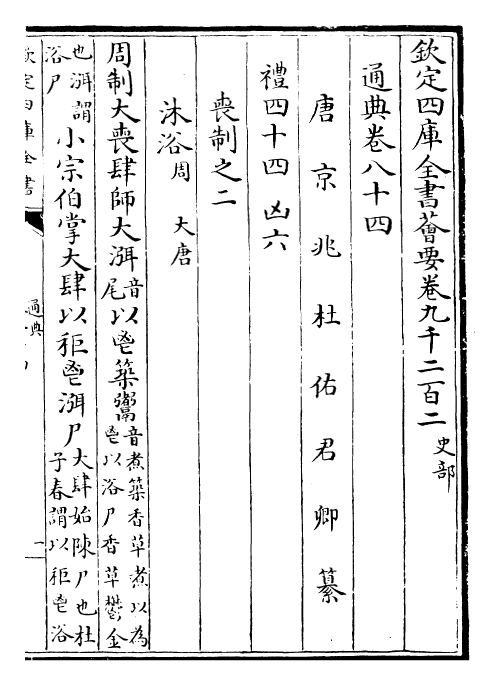 欽定四庫全書薈要卷九千二百二 史部
通典卷八十四
唐京兆杜佑君卿纂
禮四十四 凶六
喪制之二
沐浴 周 大唐
周制大喪肆師大渳音尾以鬯築鬻音煮築香草煮以為鬯以浴尸香草鬱金
也渳謂浴尸小宗伯掌大肆以秬鬯渳尸大肆始陳尸也杜子春謂以秬鬯浴
欽定四庫全書
通典
一